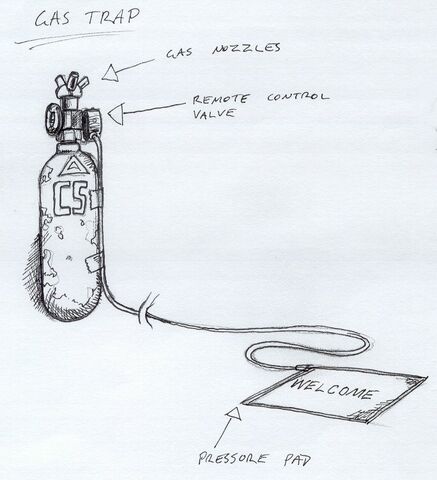 GAS TRAP
GAS NOZZLES
REMOTE CONTROL
VALVE
CS
WELCOME
PRESSURE PAD